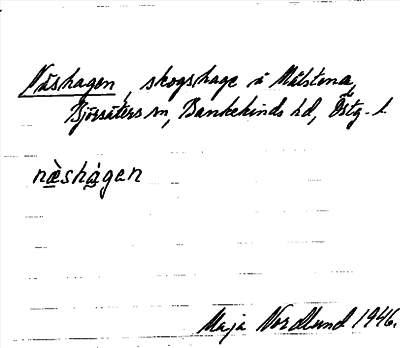 Näshagen, skogshage å Målstena,
Björsäters sn, Bankekinds hd, Östg. l.
næ̀shàgen
Maja Nordlund 1946.